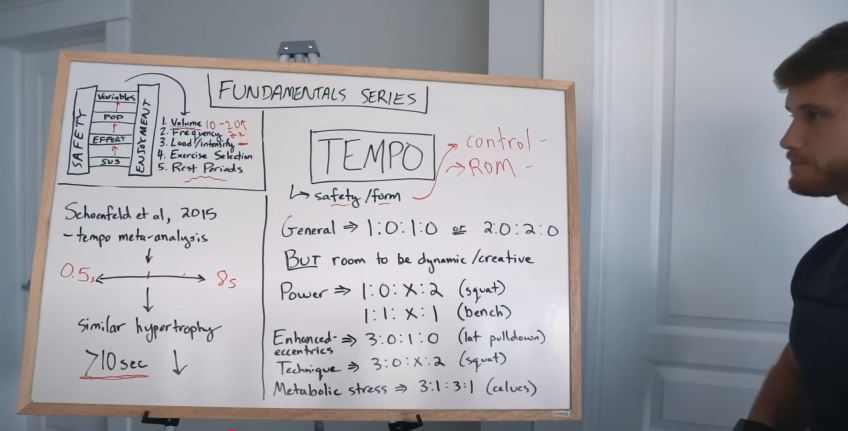 FUNDAMENTALS SERIES
SAFETY
Variables
POP
EFFORT
SUS
ENJOYMENT
1. Volume 10-20
2. Frequency
3. Load/intensity
4. Exercise Selection
5. Rest Periods
Schoenfeld et al, 2015
- tempo meta-analysis
0.5s
8s
similar hypertrophy
>10sec ↓
TEMPO
control -
→ROM -
↳ safety/form
General ⇒ 1:0:1:0 or 2:0:2:0
BUT room to be dynamic/creative
Power ⇒ 1:0:X:2 (squat)
1:1:X:1 (bench)
Enhanced- ⇒ 3:0:1:0 (lat pulldown)
eccentrics
Technique ⇒ 3:0:X:2 (squat)
Metabolic stress ⇒ 3:1:3:1 (calves)